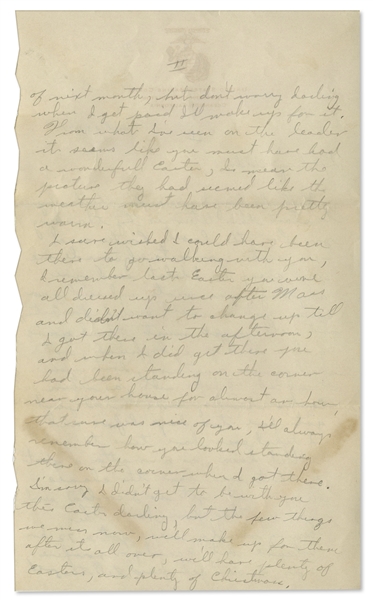 II
of next month, but don't worry darling
when I get paid I'll make up for it.
From what I've seen on the leader
it seems like you must have had
a wonderfull Easter, I mean the
picture they had seemed like the
weather must have been pretty
warm.
I sure wished I could have been
there to go walking with you,
I remember last Easter you were
all dressed up nice after Mass
and didn't want to change up till
I got there in the afternoon,
and when I did get there you
had been standing on the corner
near your house for almost an hour,
that sure was nice of you, I'll always
remember how you looked standing
there on the corner when I got there.
I'm sorry I didn't get to be with you
this Easter darling, but the few things
we miss now, we'll make up for them
after it all over, we'll have plenty of
Easters, and plenty of Christmas.